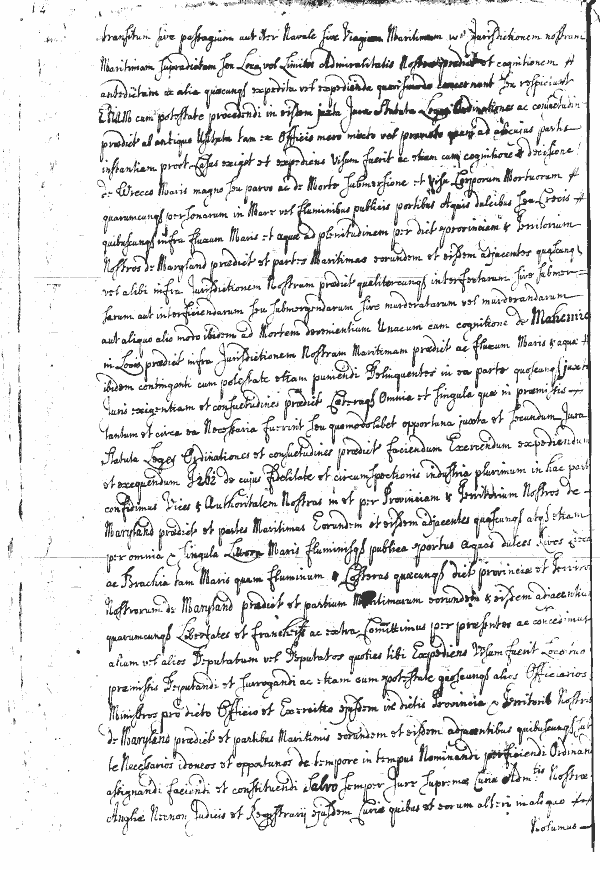 14
transitum sive passagium aut Iter Navale sive Viagium Maritimum vel Jurisdictionem nostram
Maritimam supradictam seu Loca vel Limites Admiralitatis Nostre predict et cognitionem
antedictam ex alia quacunq expedita vel expedienda concernent seu respicient
cum potestate procedendi in eisdem juxta Jura Statuta Leges Ordinationes ac consuetudin
predict ab antiquo Usitata tam ex Officio mero mixto vel promoto quam ad alicujus partis
instantiam prout Casus exiget et expediens Visum fuerit ac etiam cum cognitione & decisione
de Wrecco Maris magno seu parvo ac de Morte submersione et Visu Corporum Mortuorum
quarumcunq personarum in Mare vel fluminibus publicis portibus Aquis dulcibus seu Crecis
quibuscunq infra fluxum Maris et aque ad plenitudinem per dict provinciam & Territorium
Nostros de Maryland predict et partes Maritimas eorundem et eisdem adjacentes quascunq
vel alibi infra Jurisdictionem Nostram predict qualitercunq interfectarum sive submer-
sarum aut interficiendarum seu submergendarum sive murderatarum vel murderandarum
aut aliquo alio modo ibidem ad Mortem devenientium Unacum cum cognitione de Mahemio
in Locis predict infra Jurisdictionem Nostram Maritimam predict ac fluxum Maris & aque
ibidem contingenti cum potestate etiam puniendi Delinquentes in ea parte quoscunq juxta
Juris exigentiam et consuetudines predict Ceteraq Omnia et singula que in premissis
tantum et circa ea Necessaria fuerint seu quomodolibet opportuna juxta et secundum Jura
Statuta Leges Ordinationes et consuetudines predict faciendum Exercendum expediendum
et exequendum Tibi de cujus fidelitate et circumspectionis industria plurimum in hac part
confidimus Vices & Authoritatem Nostras in et per Provinciam & Territorium Nostros de
Maryland predict et partes Maritimas Eorundem et eisdem adjacentes quascunq atq etiam
per omnia & singula Littora Maris fluminisq publica portus Aquas dulces
ac Brachia tam Maris quam fluminum & Costeras quascunq dict provincie et Territorii
Nostrorum de Maryland predict et partium Maritimarum eorundem & eisdem adjacentium
quarumcunq Libertates et franchesias ac extra Comittimus per presentes ac concedimus
alium vel alios Deputatum vel Deputatos quoties tibi Expediens Visum fuerit Loco tuo
premissis Deputandi et surrogandi ac etiam cum potestate quoscunq alios Officiarios
Ministros pro dicto Officio et Exercitio ejusdem in dictis Provincia & Territorio Nostris
de Maryland predict et partibus Maritimis eorundem et eisdem adjacentibus quibuscunq
te Necessarios idoneos et opportunos de tempore in tempus Nominandi perficiendi Ordinand
assignandi faciendi et constituendi Salvo semper Jure Supreme Curie Admtis Nostre
Anglie Necnon Judicis et Registrarij ejusdem Curie quibus et eorum alteri in aliquo
Volumus